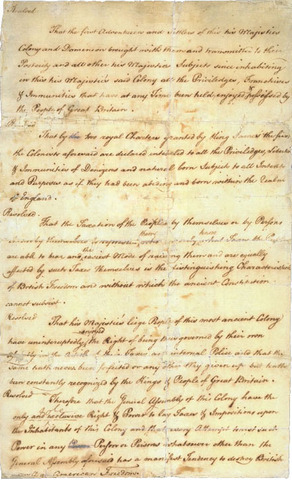 Resolved
That the first Adventurers and Settlers of this his Majesties
Colony and Dominion brought with them and transmitted to their
Posterity and all other his Majesties Subjects since inhabiting
in this his Majesties said Colony all the Priviledges, Franchises
& Immunities that have at any Time been held, enjoyed & possessed by
the People of Great Britain.
That by the two royal Charters granted by King James the first
the Colonists aforesaid are declared intituled to all the Priviledges, Liberties
& Immunities of Denizens and natural born Subjects to all Intents
and Purposes as if they had been abiding and born within the Realm
of England.
Resolved
That the Taxation of the People by themselves or by Persons
chosen by themselves to represent them who can only know what Taxes the People
are able to bear and the easiest Mode of raising them and are equally
affected by such Taxes Themselves is the distinguishing Characteristick
of British Freedom and without which the ancient Constitution
cannot subsist.
Resolved
That his Majesties liege People of this most ancient Colony
have uninterruptedly the Right of being thus governed by their own
Assembly in the Article of their Taxes and internal Police and that the
same hath never been forfeited or any other Way given up but hath
been constantly recognized by the Kings & People of Great Britain.
Resolved
Therefore that the General Assembly of this Colony have the
only and exclusive Right & Power to lay Taxes & Impositions upon
the Inhabitants of this Colony and that every Attempt to vest such
Power in any Person or Persons whatsoever other than the
General Assembly aforesaid has a manifest Tendency to destroy British
as well as American Freedom.